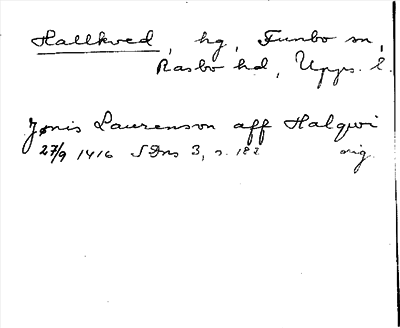 Hallkved, hg, Funbo sn,
Rasbo hd, Upps. l.
Jønis Laurenson aff Halqwi
27/9 1416 SDns 3, s. 182 orig.